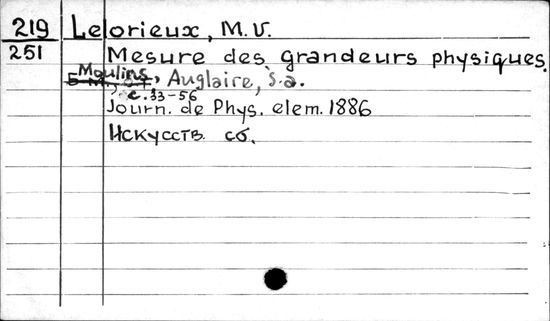 219 Lelorieux, M.V.
251 Mesure des grandeurs physiques.
Moulins, Auglaire, s.a.
c. 33-56
Journ. de Phys. elem. 1886
Искусств. сб.